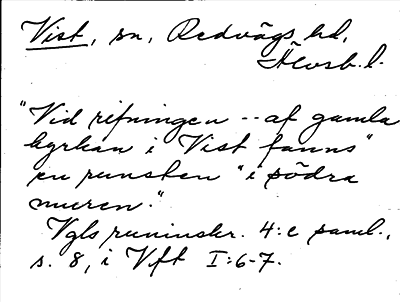 Vist, sn, Redvägs hd,
Älvsb. l.
"Vid rifningen -- af gamla
kyrkan i Vist fanns"
en runsten "i södra
muren."
Vgls runinskr. 4:e saml.,
s. 8, i Vft I:6-7.